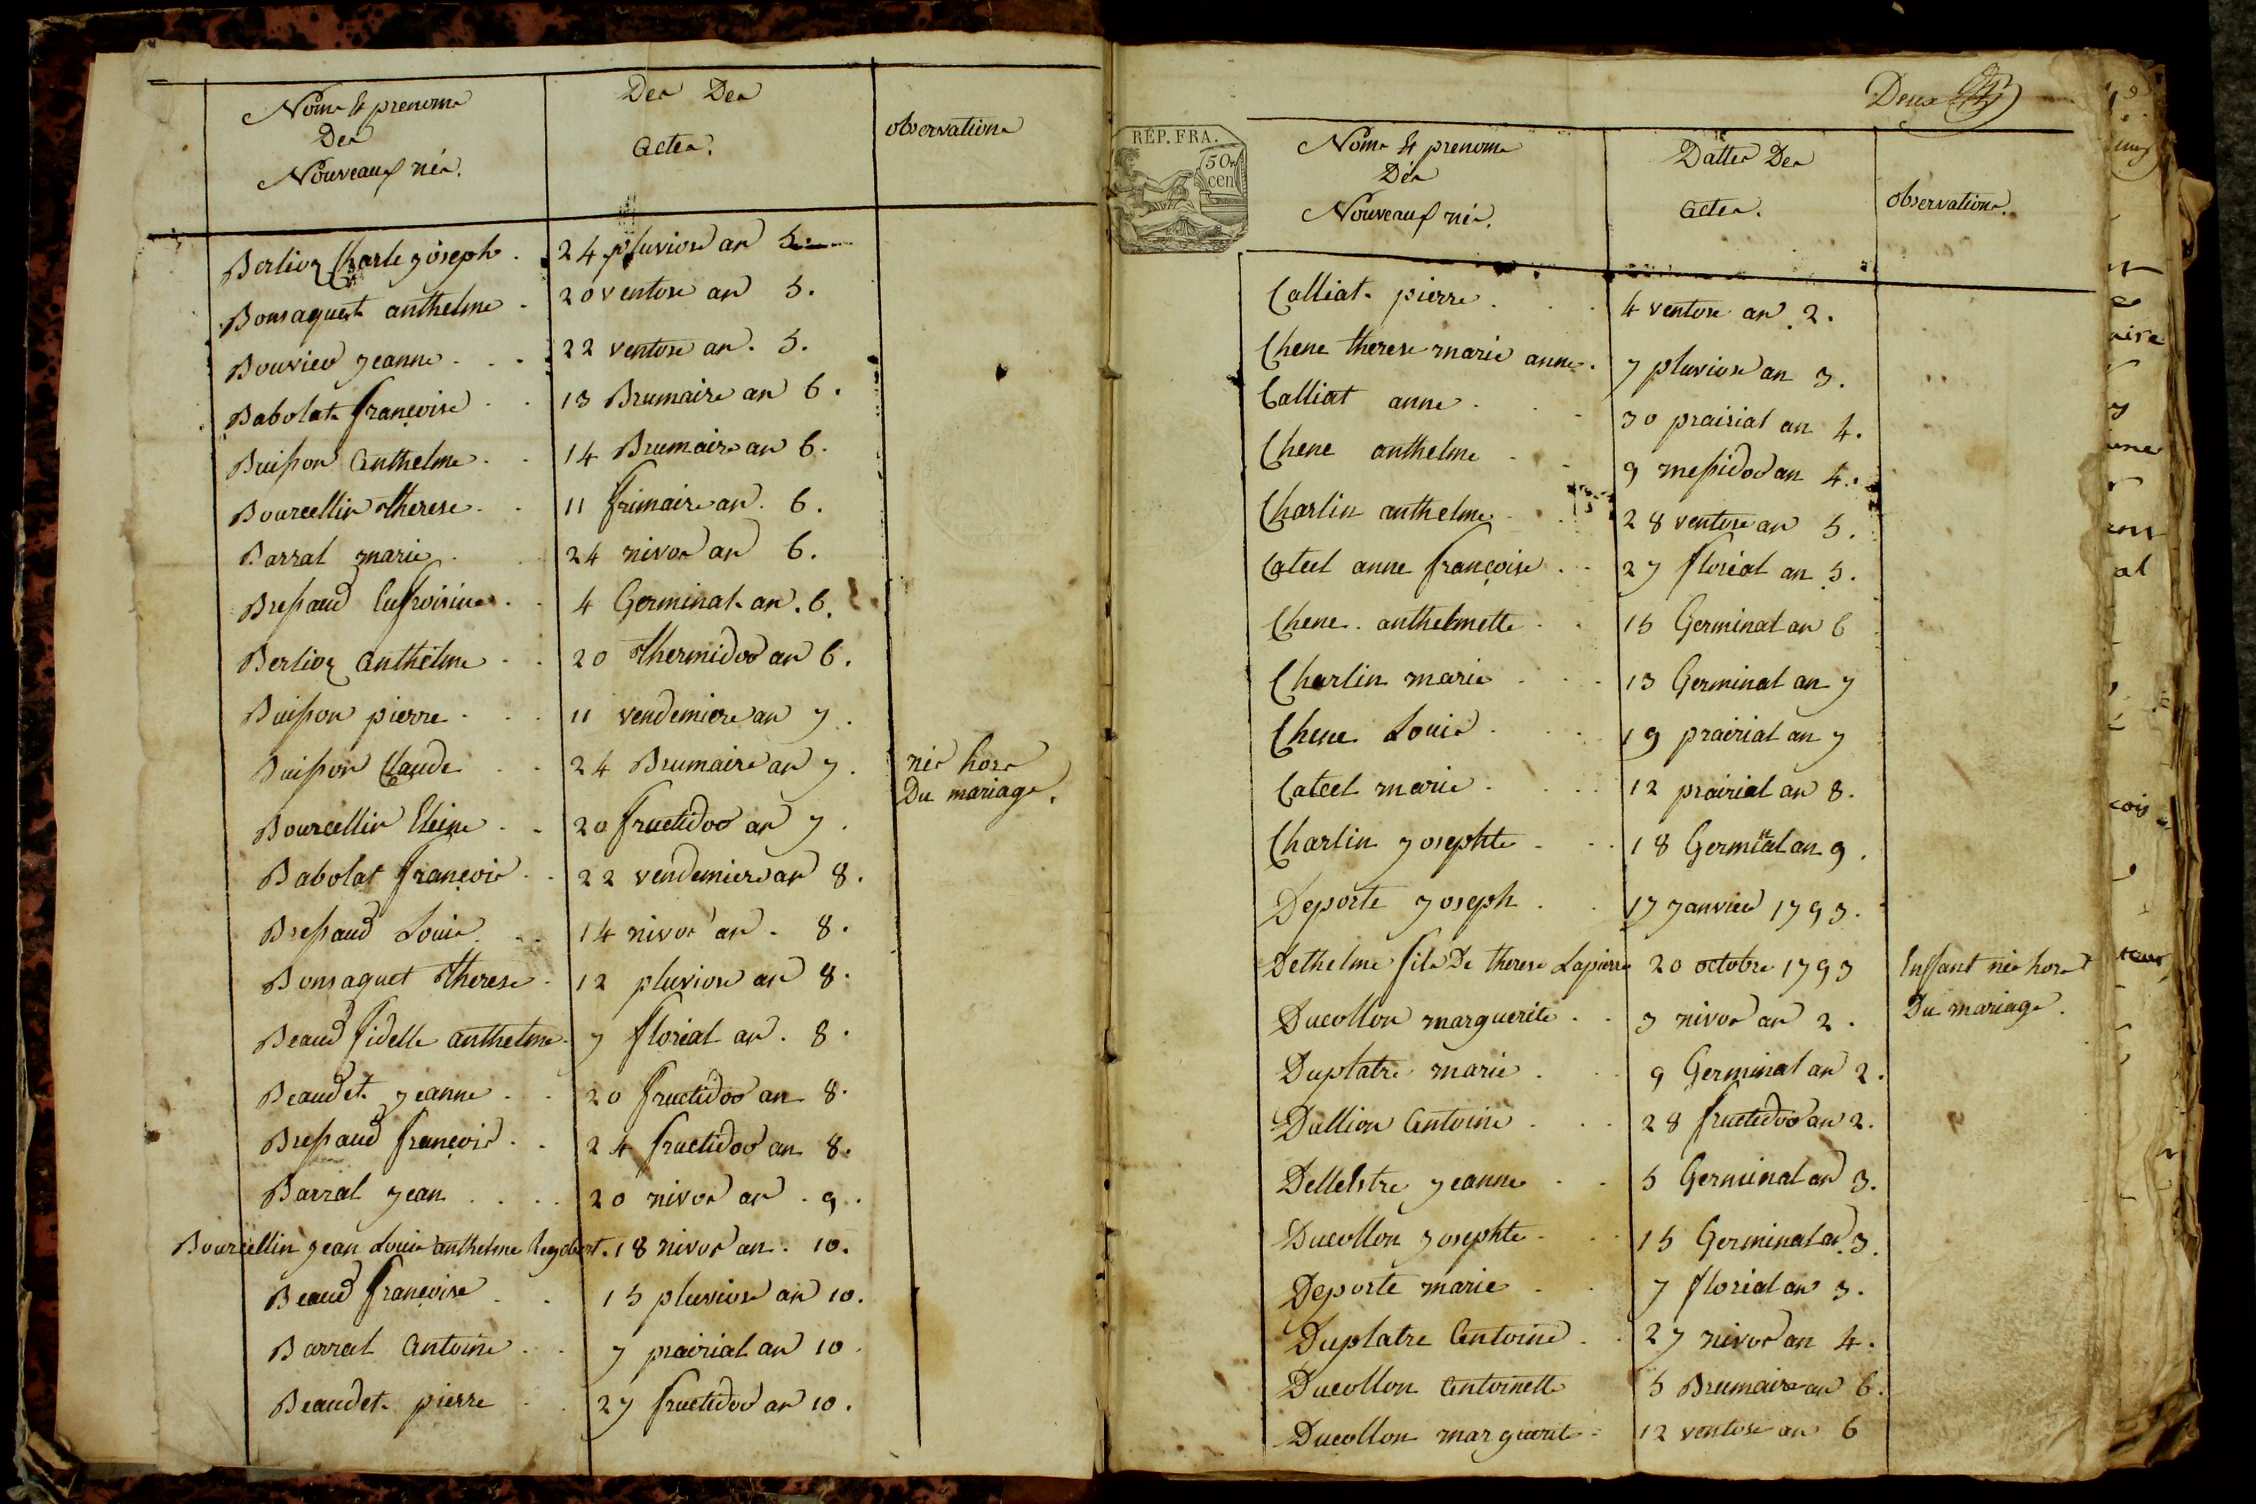 Noms & prenoms
Des
Nouveaux nés.
Des Des
actes.
observations
Berlioz Charle joseph . 24 pluviose an 5.
Bonsaquet anthelme . 20 ventose an 5.
Bouvier jeanne . . 22 ventose an . 5.
Babolat françoise . . 13 Brumaire an 6.
Buisson anthelme . . 14 Brumaire an 6.
Bourcellin therese . . 11 frimaire an . 6.
Barral marie . . 24 nivos an 6.
Bressaud . . 4 Germinal an . 6.
Berlioz anthelme . . 20 thermidor an 6.
Buisson pierre . . . 11 vendemiere an 7.
Buisson Claude . . 24 Brumaire an 7. nés hors
Du mariage.
Bourcellin . . 20 fructidor an 7.
Babolat françois . . 22 vendemiere an 8.
Bressaud Louis . . . 14 nivos an . 8.
Bonsaquet therese . 12 pluviose an 8.
Beaud fidelle anthelme . 7 florial an . 8.
Beaudet jeanne . . 20 fructidor an 8.
Bressaud françois . . 24 fructidor an 8.
Barral jean . . . . 20 nivos an . 9.
Bourcellin jean Louis anthelme . 18 nivos an . 10.
Beaud françoise . . 15 pluviose an 10.
Barral Antoine . . 7 prairial an 10.
Beaudet pierre . . 27 fructidor an 10.
Deux
RÉP. FRA.
50
cen
Noms & prenoms
Des
Nouveaux nés.
Dattes Des
actes.
observations.
Calliat pierre . . . 4 ventose an 2.
Chene therese marie anne . 7 pluviose an 3.
Calliat anne . . . 30 prairial an 4.
Chene anthelme . . 9 messidor an 4.
Charlin anthelme . . 28 ventose an 5.
Catect anne françoise . . 27 florial an 5.
Chene . anthelmette . . 15 Germinal an 6
Charlin marie . . . 13 Germinal an 7
Chene Louis . . . 19 prairial an 7
Catect marie . . . 12 prairial an 8.
Charlin josephte . . . 18 Germinal an 9.
Deporte joseph . . 17 janvier 1793.
Dethelme fils De therese Lapierre 20 octobre 1793 Enffant nés hors
Du mariage.
Ducollon marguerite . . 3 nivos an 2.
Duplatre marie . . . 9 Germinal an 2.
Dallion Antoine . . . 28 fructidor an 2.
Dellestre jeanne . . 5 Germinal an 3.
Ducollon josephte . . . 15 Germinal an 3.
Deporte marie . . 7 florial an 3.
Duplatre Antoine . . 27 nivos an 4.
Ducollon Antoinette 5 Brumaire an 6.
Ducollon marguerite . 12 ventose an 6